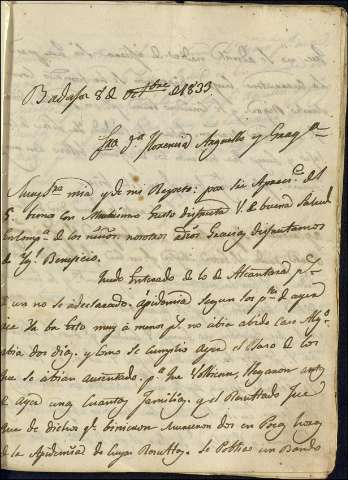 Badajoz 8 de Octbre de 1833
Sra Da Florencia Arguello y
Muy Sra mia y de mi Respeto: por su Apreci.e del
5 veo con Muchisimo Gusto disfruta V. de buena Salud
en Comp.a de los niños. nosotros a Dios Gracias disfrutamos
de Ygl Beneficio.
quedo Enterado de lo de Alcantara pr
aun no se a declarado. Epidemia segun los ptes de ayer
dice Va Esto muy á menos pr no abia abido Caso Algo
abia dos dias. y como se Cumplio ayer el Plazo de los
que se abian ausentado. pa que Volbieran, Llegaron antes
de ayer unas Cuantas familias. y el Resultado fue
que de dichos qe binieron Murieron dos en Pocas horas
de la Epidemia de cuyas Resultas. se Publico un Bando